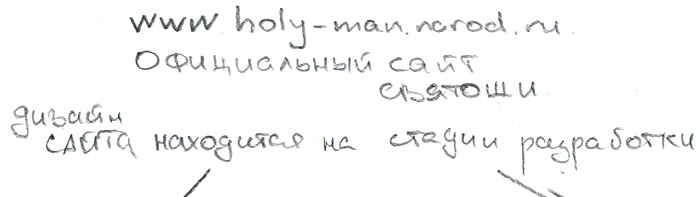 www.holy-man.narod.ru
Официальный сайт
святоши
дизайн
сайта находится на стадии разработки